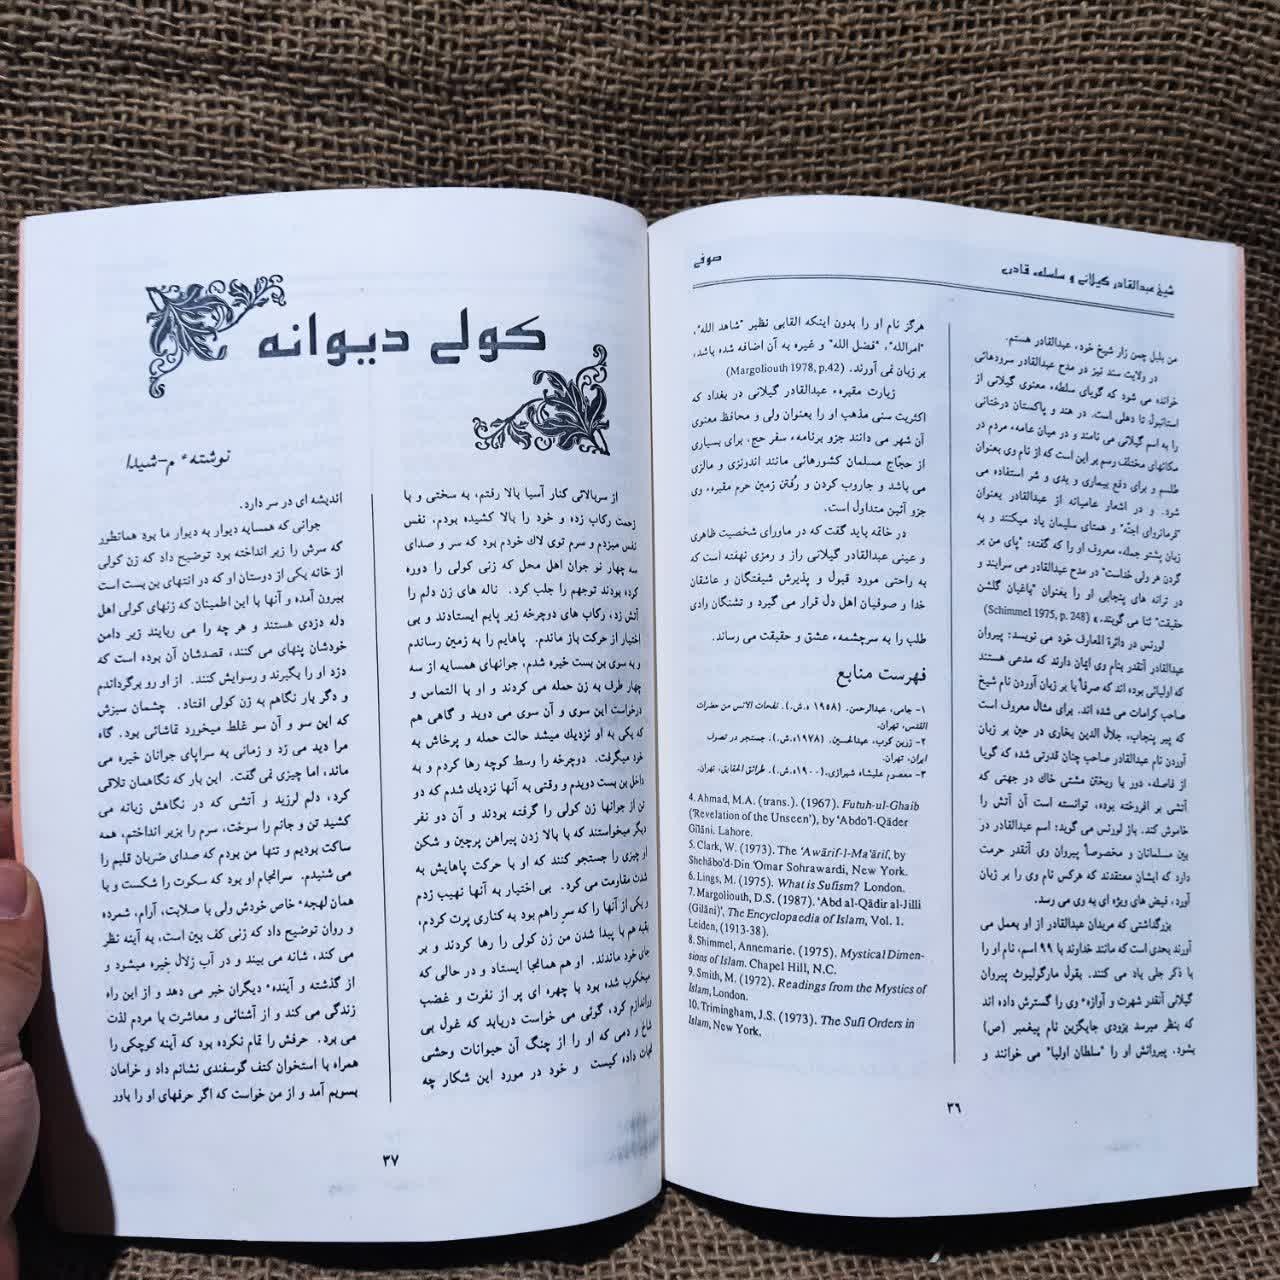 شیخ عبدالقادر گیلانی و سلسلهء قادری
صوفی
من بلبل چمن زار شیخ خود، عبدالقادر هستم.
در ولایت سند نیز در مدح عبدالقادر سرودهائی
خوانده می شود که گویای سلطهء معنوی گیلانی از
استانبول تا دهلی است. در هند و پاکستان درختانی
را به اسم گیلانی می نامند و در میان عامهء مردم در
مکانهای مختلف رسم بر این است که از نام وی بعنوان
طلسم و برای دفع بیماری و بدی و شر استفاده می
شود. و در اشعار عامیانه از عبدالقادر بعنوان
"فرمانروای اجنّه" و همتای سلیمان یاد میکنند و به
زبان پشتو جملهء معروف او را که گفته: "پای من بر
گردن هر ولی خداست" در مدح عبدالقادر می سرایند و
در ترانه های پنجابی او را بعنوان "باغبان گلشن
حقیقت" ثنا می گویند.» (Schimmel 1975, p. 248)
لورنس در دائرة المعارف خود می نویسد: پیروان
عبدالقادر آنقدر بنام وی ایمان دارند که مدعی هستند
که اولیائی بوده اند که صرفاً با بر زبان آوردن نام شیخ
صاحب کرامات می شده اند. برای مثال معروف است
که پیر پنجاب، جلال الدین بخاری در حین بر زبان
آوردن نام عبدالقادر صاحب چنان قدرتی شده که گویا
از فاصلهء دور با ریختن مشتی خاک در جهتی که
آتشی بر افروخته بوده، توانسته است آن آتش را
خاموش کند. باز لورنس می گوید: اسم عبدالقادر در
بین مسلمانان و مخصوصاً پیروان وی آنقدر حرمت
دارد که ایشان معتقدند که هرکس نام وی را بر زبان
آورد، فیض های ویژه ای به وی می رسد.
بزرگداشتی که مریدان عبدالقادر از او بعمل می
آورند بحدی است که مانند خداوند با ۹۹ اسم، نام او را
با ذکر جلی یاد می کنند. بقول مارگولیوث پیروان
گیلانی آنقدر شهرت و آوازهء وی را گسترش داده اند
که بنظر میرسد بزودی جایگزین نام پیغمبر (ص)
بشود. پیروانش او را "سلطان اولیا" می خوانند و
هرگز نام او را بدون اینکه القابی نظیر "شاهد الله"،
"امرالله"، "فضل الله" و غیره به آن اضافه شده باشد،
بر زبان نمی آورند. (Margoliouth 1978, p.42)
زیارت مقبرهء عبدالقادر گیلانی در بغداد که
اکثریت سنی مذهب او را بعنوان ولی و محافظ معنوی
آن شهر می دانند جزو برنامهء سفر حج، برای بسیاری
از حجّاج مسلمان کشورهائی مانند اندونزی و مالزی
می باشد و جاروب کردن و رُفتن زمین حرم مقبرهء وی
جزو آئین متداول است.
در خاتمه باید گفت که در ماورای شخصیت ظاهری
و عینی عبدالقادر گیلانی راز و رمزی نهفته است که
به راحتی مورد قبول و پذیرش شیفتگان و عاشقان
خدا و صوفیان اهل دل قرار می گیرد و تشنگان وادی
طلب را به سرچشمهء عشق و حقیقت می رساند.
فهرست منابع
۱- جامی، عبدالرحمن. (۱۹۵۸ ه.ش.). نفحات الانس من حضرات
القدس، تهران.
۲- زرین کوب، عبدالحسین. (۱۹۷۸ه.ش.). جستجو در تصوف
ایران، تهران.
۳- معصوم علیشاه شیرازی.(۱۹۰۰ه.ش.). طرائق الحقایق، تهران.
4. Ahmad, M.A. (trans.). (1967). Futuh-ul-Ghaib
('Revelation of the Unseen'), by 'Abdo'l-Qāder
Gilāni. Lahore.
5. Clark, W. (1973). The 'Awārif-l-Ma'ārif, by
Shehābo'd-Din 'Omar Sohrawardi, New York.
6. Lings, M. (1975). What is Sufism? London.
7. Margoliouth, D.S. (1987). 'Abd al-Qādir al-Jilli
(Gilāni)', The Encyclopaedia of Islam, Vol. 1.
Leiden, (1913-38).
8. Shimmel, Annemarie. (1975). Mystical Dimen-
sions of Islam. Chapel Hill, N.C.
9. Smith, M. (1972). Readings from the Mystics of
Islam, London.
10. Trimingham, J.S. (1973). The Sufi Orders in
Islam, New York.
۳۶
کولی دیوانه
نوشتهء م-شیدا
از سربالائی کنار آسیا بالا رفتم، به سختی و با
زحمت رکاب زده و خود را بالا کشیده بودم، نفس
نفس میزدم و سرم توی لاک خودم بود که سر و صدای
سه چهار نو جوان اهل محل که زنی کولی را دوره
کرده بودند توجهم را جلب کرد. ناله های زن دلم را
آتش زد، رکاب های دوچرخه زیر پایم ایستادند و بی
اختیار از حرکت باز ماندم. پاهایم را به زمین رساندم
و به سوی بن بست خیره شدم، جوانهای همسایه از سه
چهار طرف به زن حمله می کردند و او با التماس و
درخواست این سوی و آن سوی می دوید و گاهی هم
که یکی به او نزدیک میشد حالت حمله و پرخاش به
خود میگرفت. دوچرخه را وسط کوچه رها کردم و به
داخل بن بست دویدم و وقتی به آنها نزدیک شدم که دو
تن از جوانها زن کولی را گرفته بودند و آن دو نفر
دیگر میخواستند که با بالا زدن پیراهن پرچین و شکن
او چیزی را جستجو کنند که او با حرکت پاهایش به
شدت مقاومت می کرد. بی اختیار به آنها نهیب زدم
و یکی از آنها را که سر راهم بود به کناری پرت کردم،
بقیه هم با پیدا شدن من زن کولی را رها کردند و بر
جای خود ماندند. او هم همانجا ایستاد و در حالی که
میخکوب شده بود با چهره ای پر از نفرت و غضب
وراندازم کرد، گوئی می خواست دریابد که غول بی
شاخ و دمی که او را از چنگ آن حیوانات وحشی
نجات داده کیست و خود در مورد این شکار چه
اندیشه ای در سر دارد.
جوانی که همسایه دیوار به دیوار ما بود همانطور
که سرش را زیر انداخته بود توضیح داد که زن کولی
از خانه یکی از دوستان او که در انتهای بن بست است
بیرون آمده و آنها با این اطمینان که زنهای کولی اهل
دله دزدی هستند و هر چه را می ربایند زیر دامن
خودشان پنهای می کنند، قصدشان آن بوده است که
دزد او را بگیرند و رسوایش کنند. از او رو برگرداندم
و دگر بار نگاهم به زن کولی افتاد. چشمان سبزش
که این سو و آن سو غلط میخورد تماشائی بود. گاه
مرا دید می زد و زمانی به سراپای جوانان خیره می
ماند، اما چیزی نمی گفت. این بار که نگاهمان تلاقی
کرد، دلم لرزید و آتشی که در نگاهش زبانه می
کشید تن و جانم را سوخت، سرم را بزیر انداختم، همه
ساکت بودیم و تنها من بودم که صدای ضربان قلبم را
می شنیدم. سرانجام او بود که سکوت را شکست و با
همان لهجهء خاص خودش ولی با صلابت، آرام، شمرده
و روان توضیح داد که زنی کف بین است، به آینه نظر
می کند، شانه می بیند و در آب زلال خیره میشود و
از گذشته و آیندهء دیگران خبر می دهد و از این راه
زندگی می کند و از آشنائی و معاشرت با مردم لذت
می برد. حرفش را تمام نکرده بود که آینه کوچکی را
همراه با استخوان کتف گوسفندی نشانم داد و خرامان
بسویم آمد و از من خواست که اگر حرفهای او را باور
۳۷